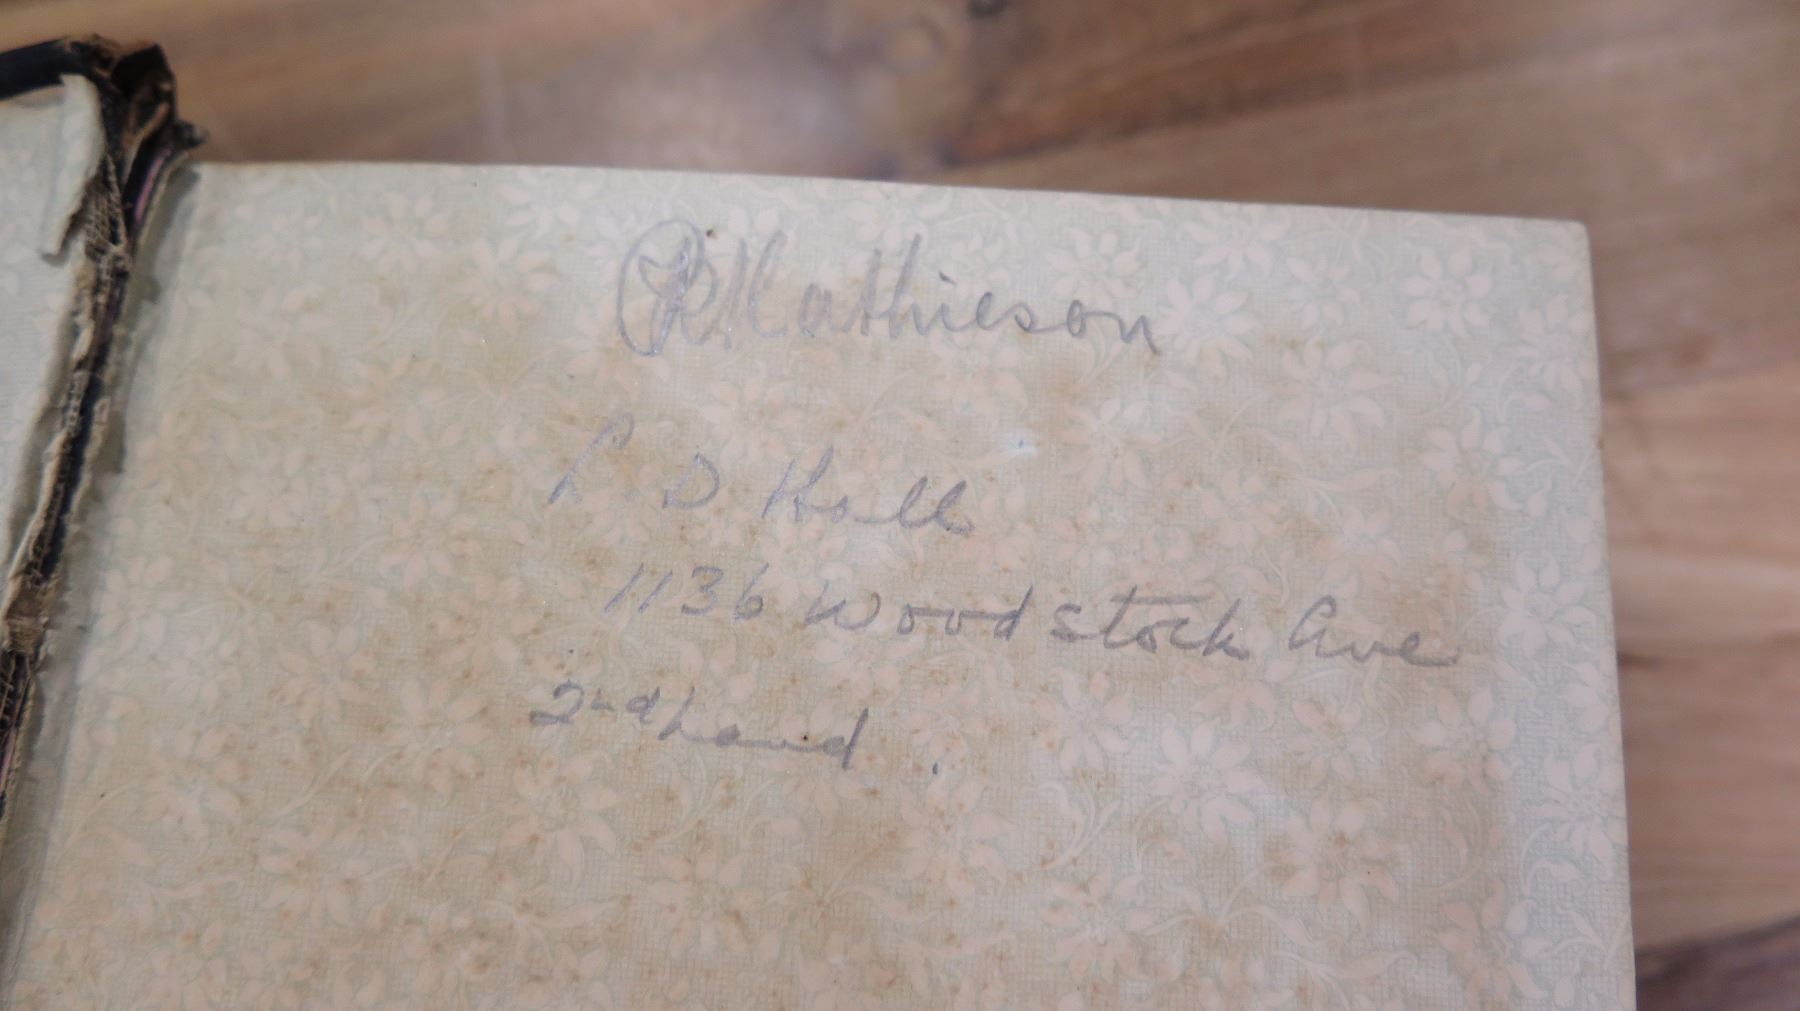 R Mathieson
L D Hall
1136 Woodstock Ave
2nd hand.